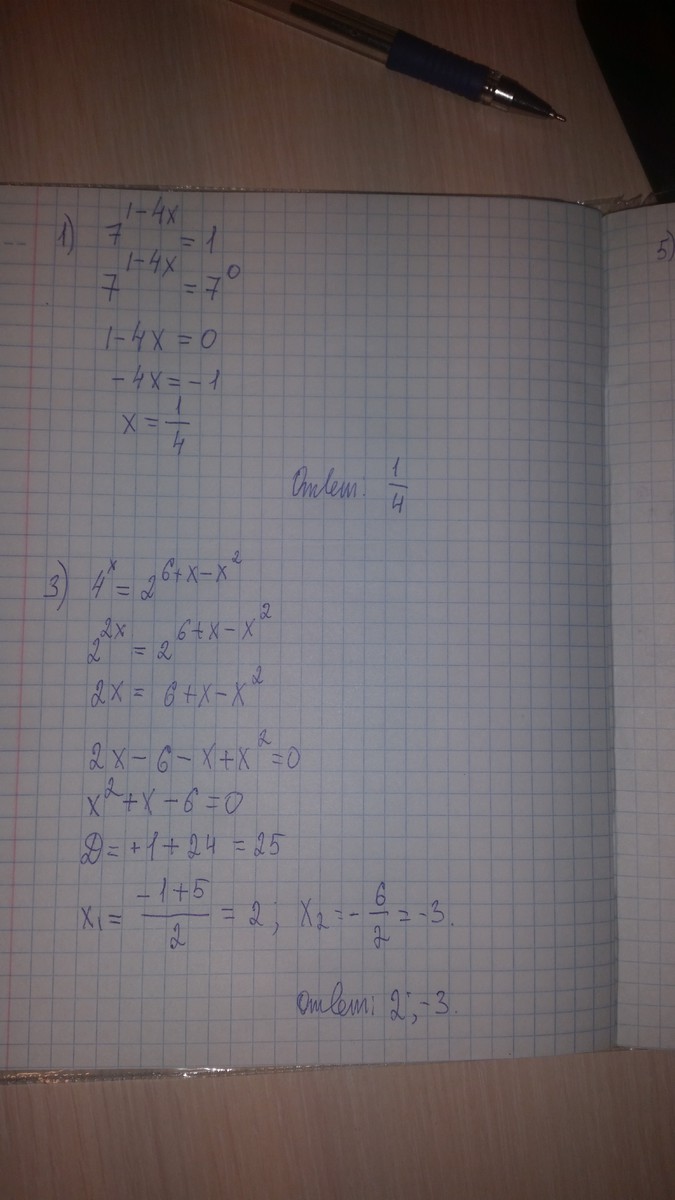 1) 7^(1-4x) = 1
7^(1-4x) = 7^0
1-4x = 0
-4x = -1
x = 1/4
Ответ: 1/4
3) 4^x = 2^(6+x-x^2)
2^(2x) = 2^(6+x-x^2)
2x = 6+x-x^2
2x-6-x+x^2=0
x^2+x-6=0
D=+1+24=25
x₁= (-1+5)/2 = 2; x₂=-6/2=-3.
Ответ: 2; -3.
5)